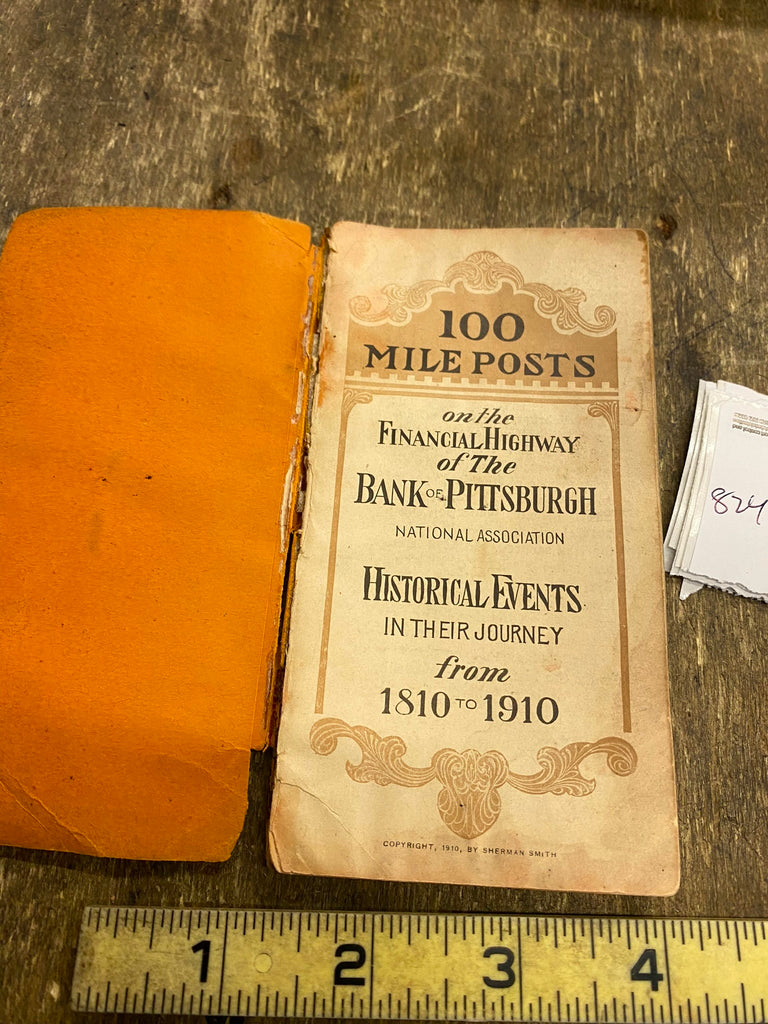 100
MILE POSTS
on the
FINANCIAL HIGHWAY
of The
BANK OF PITTSBURGH
NATIONAL ASSOCIATION
HISTORICAL EVENTS
IN THEIR JOURNEY
from
1810 TO 1910
COPYRIGHT, 1910, BY SHERMAN SMITH
824
1 2 3 4